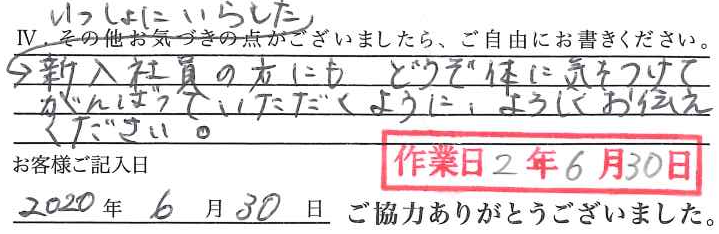 いっしょにいらした
Ⅳ．その他お気づきの点がございましたら、ご自由にお書きください。
新入社員の方にも どうぞ体に気をつけて
がんばっていただくように、よろしくお伝え
ください。
お客様ご記入日
作業日2年6月30日
2020年 6月30日 ご協力ありがとうございました。